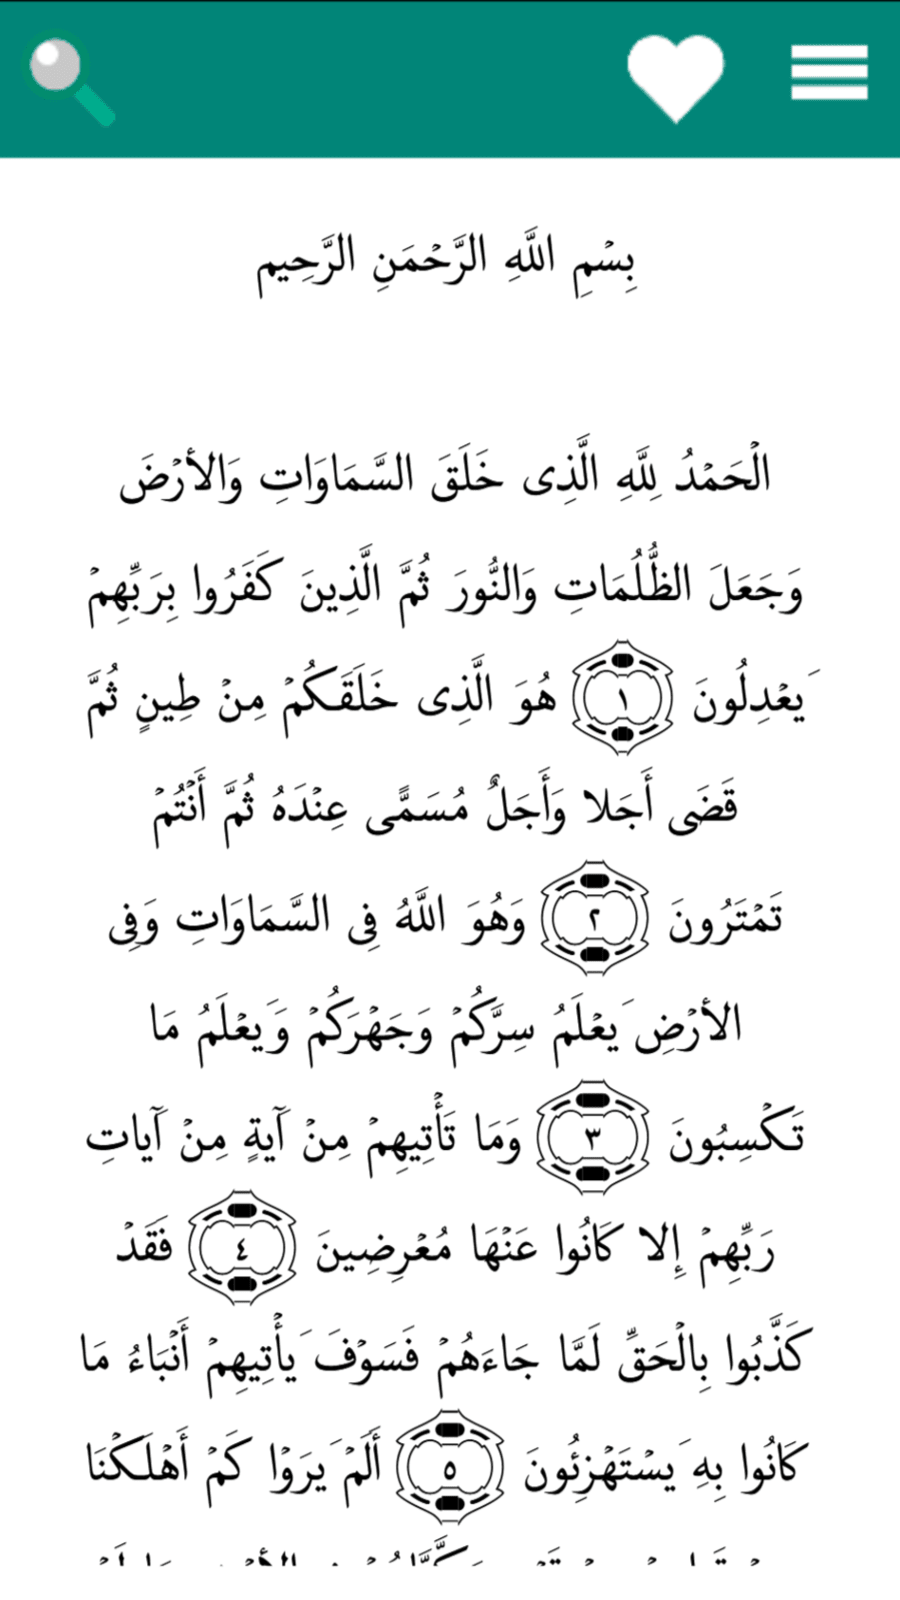 بِسْمِ اللَّهِ الرَّحْمَنِ الرَّحِيم
الْحَمْدُ لِلَّهِ الَّذِى خَلَقَ السَّمَاوَاتِ وَالأرْضَ
وَجَعَلَ الظُّلُمَاتِ وَالنُّورَ ثُمَّ الَّذِينَ كَفَرُوا بِرَبِّهِمْ
يَعْدِلُونَ ١ هُوَ الَّذِى خَلَقَكُمْ مِنْ طِينٍ ثُمَّ
قَضَى أَجَلا وَأَجَلٌ مُسَمًّى عِنْدَهُ ثُمَّ أَنْتُمْ
تَمْتَرُونَ ٢ وَهُوَ اللَّهُ فِى السَّمَاوَاتِ وَفِى
الأرْضِ يَعْلَمُ سِرَّكُمْ وَجَهْرَكُمْ وَيَعْلَمُ مَا
تَكْسِبُونَ ٣ وَمَا تَأْتِيهِمْ مِنْ آيَةٍ مِنْ آيَاتِ
رَبِّهِمْ إِلا كَانُوا عَنْهَا مُعْرِضِينَ ٤ فَقَدْ
كَذَّبُوا بِالْحَقِّ لَمَّا جَاءَهُمْ فَسَوْفَ يَأْتِيهِمْ أَنْبَاءُ مَا
كَانُوا بِهِ يَسْتَهْزِئُونَ ٥ أَلَمْ يَرَوْا كَمْ أَهْلَكْنَا